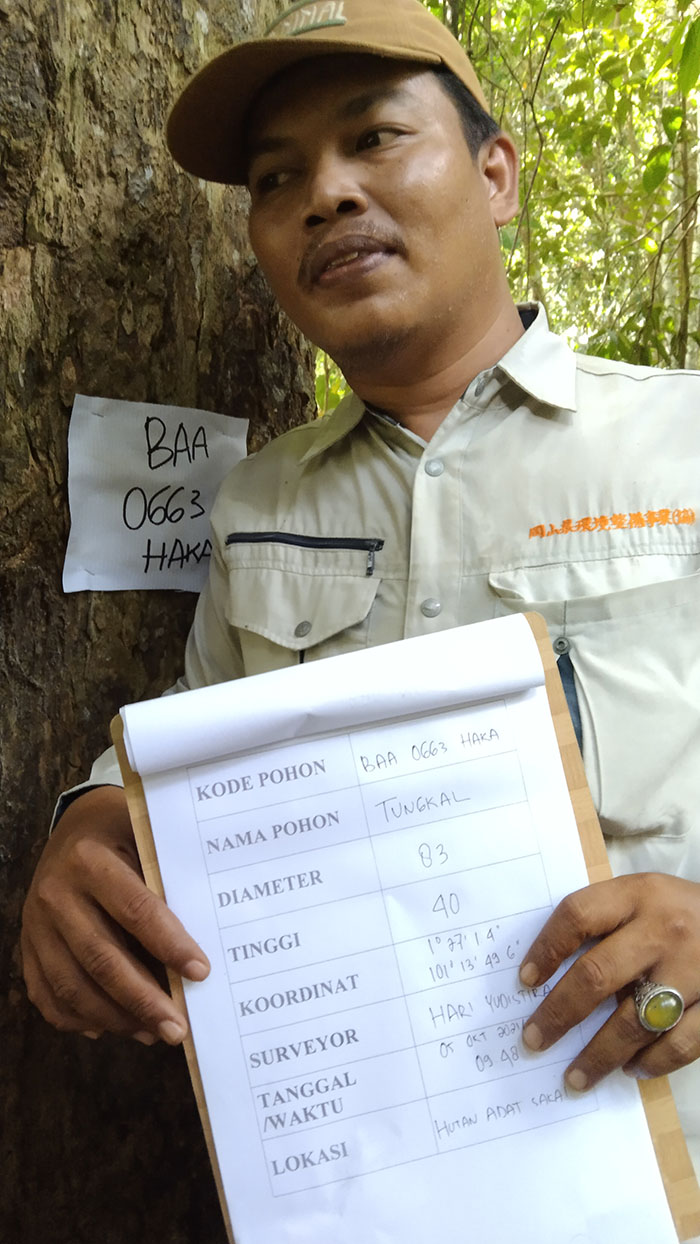 BAA
0663
HAKA
岡山県環境整備事業(協)
KODE POHON BAA 0663 HAKA
NAMA POHON TUNGKAL
DIAMETER 83
TINGGI 40
KOORDINAT 1° 27' 1 4"
101° 13' 49 6"
SURVEYOR HARI YUDISTIRA
TANGGAL 05 OKT 2024
/WAKTU 09 48
LOKASI HUTAN ADAT SAKAI